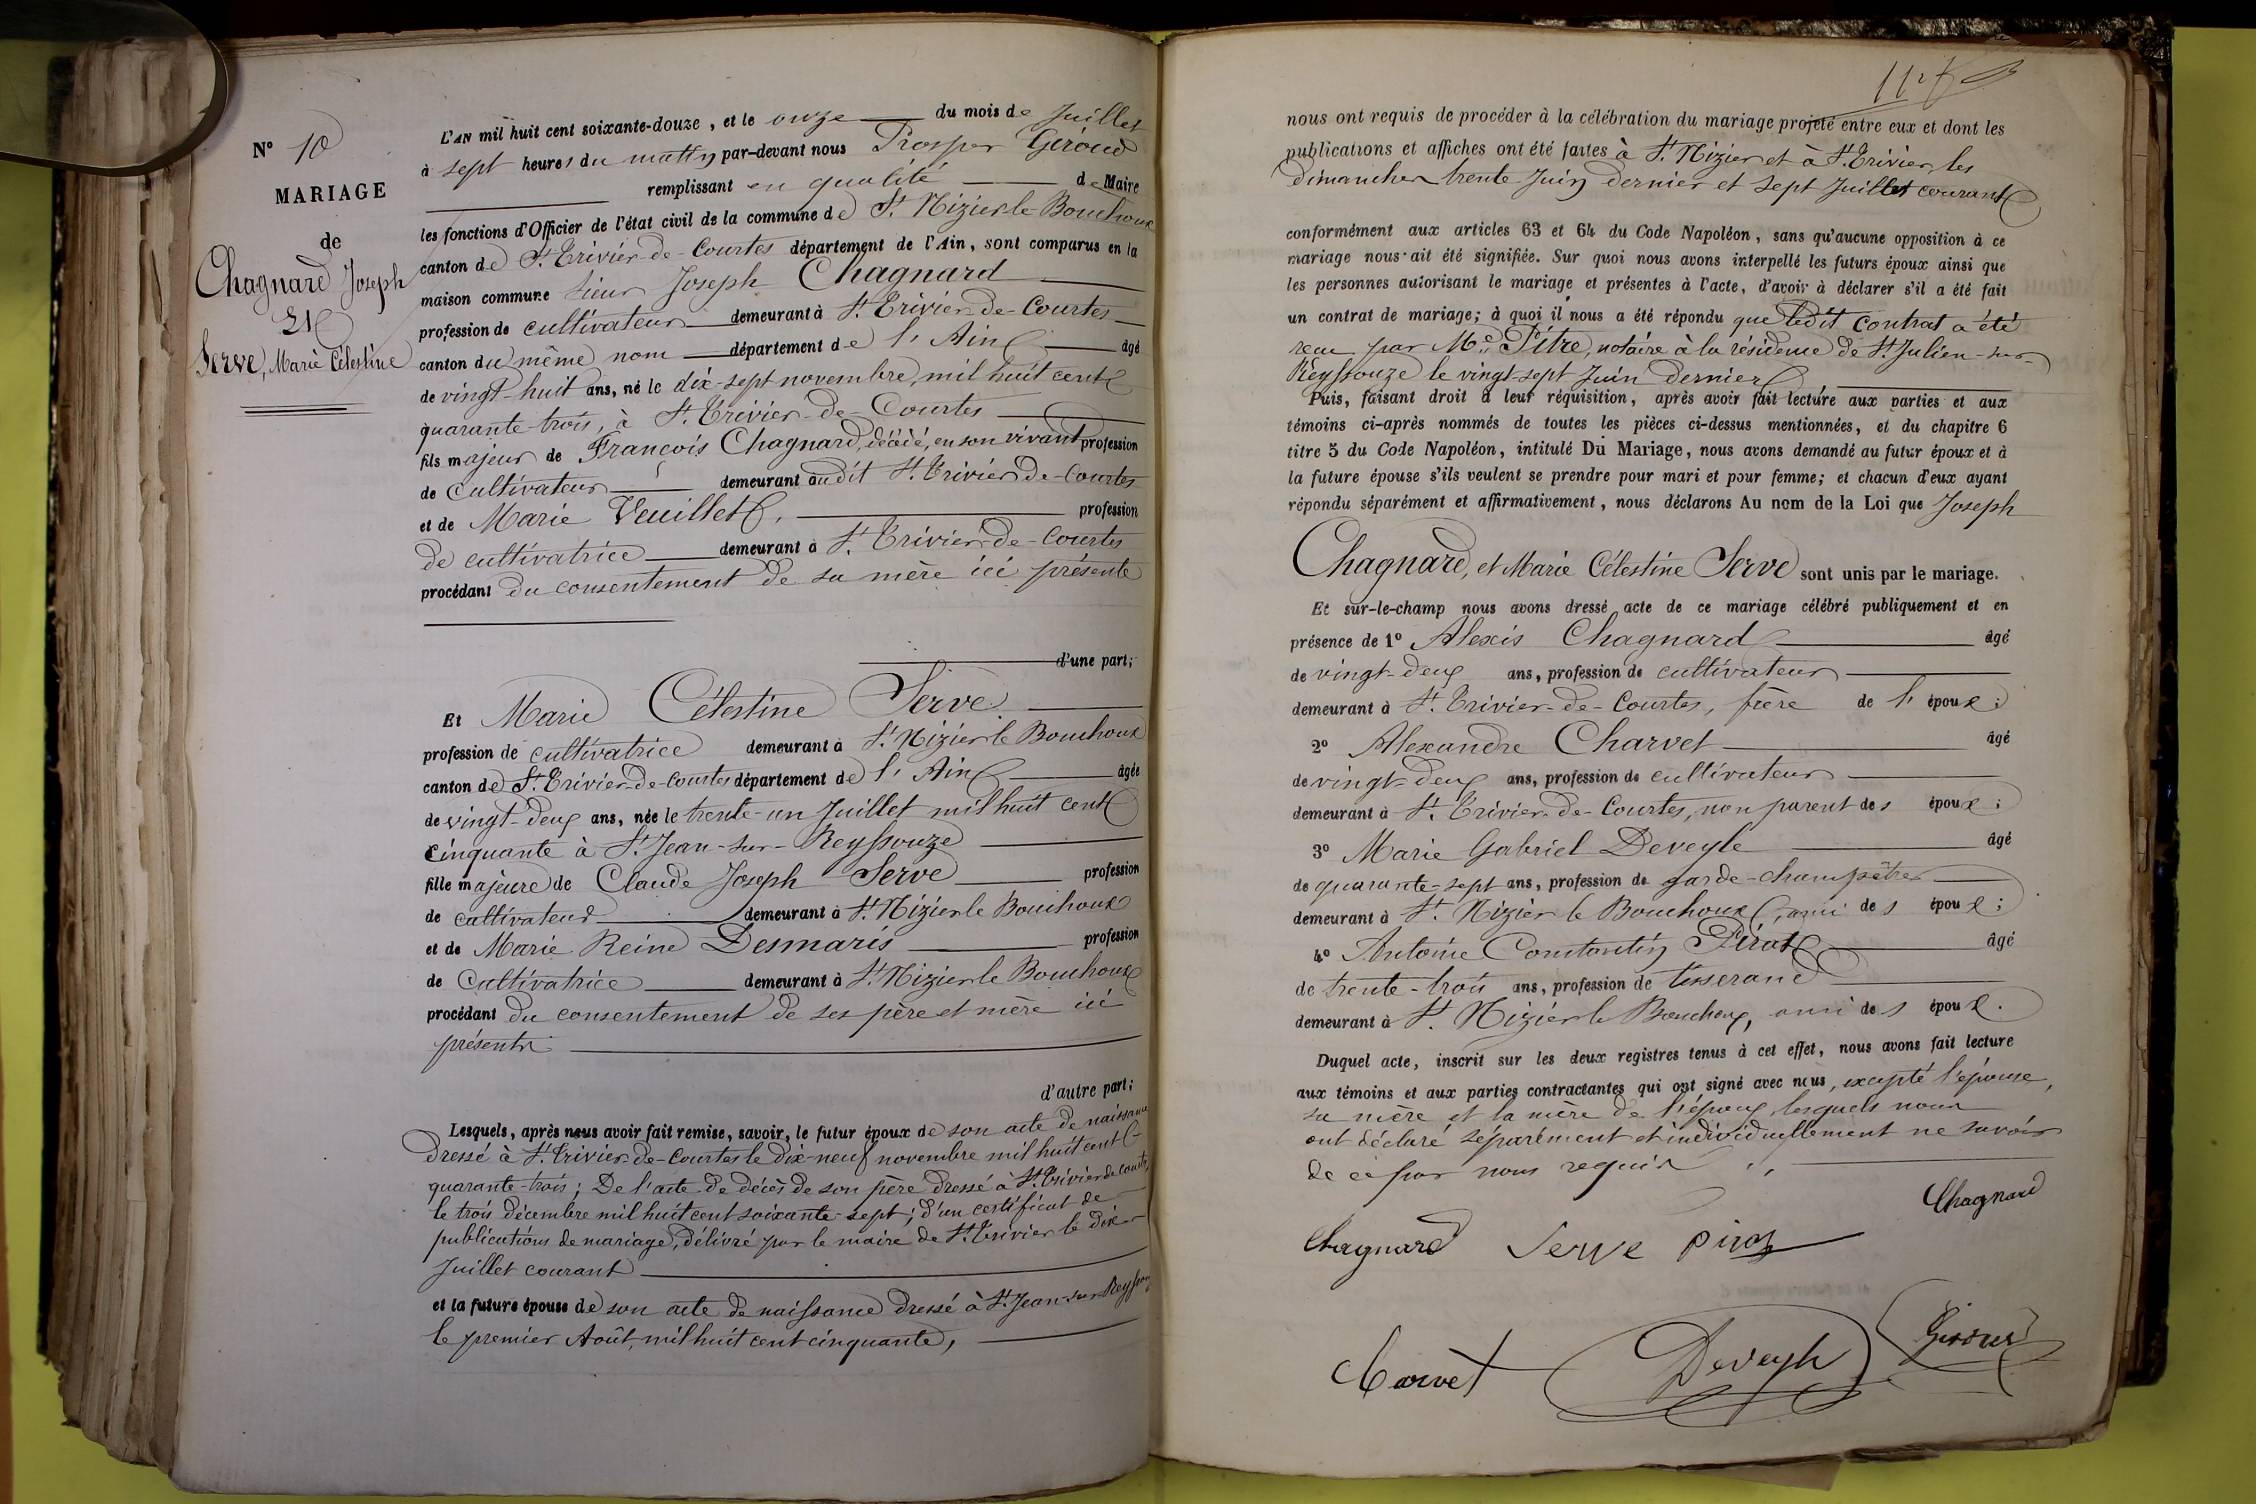 N° 10
MARIAGE
de
Chagnard Joseph
Et
Serve, Marie Célestine
L'AN mil huit cent soixante-douze, et le onze du mois de Juillet
à sept heures du matin par-devant nous Prosper Giroud
remplissant en qualité de Maire
les fonctions d'Officier de l'état civil de la commune de St. Nizier le Bouchoux
canton de St. Trivier-de-Courtes département de l'Ain, sont comparus en la
maison commune sieur Joseph Chagnard
profession de cultivateur demeurant à St. Trivier-de-Courtes
canton du même nom département de l'Ain âgé
de vingt-huit ans, né le dix-sept novembre, mil huit cent
quarante-trois, à St. Trivier-de-Courtes
fils majeur de François Chagnard, décédé, en son vivant profession
de cultivateur demeurant audit St. Trivier-de-Courtes
et de Marie Veuillet, profession
de cultivatrice demeurant à St. Trivier-de-Courtes
procédant du consentement de sa mère ici présente
d'une part;
Et Marie Célestine Serve
profession de cultivatrice demeurant à St. Nizier le Bouchoux
canton de St. Trivier-de-Courtes département de l'Ain âgée
de vingt-deux ans, née le trente-un Juillet mil huit cent
cinquante à St. Jean-sur-Reyssouze
fille majeure de Claude Joseph Serve profession
de cultivateur demeurant à St. Nizier le Bouchoux
et de Marie Reine Desmaris profession
de Cultivatrice demeurant à St. Nizier le Bouchoux
procédant du consentement de ses père et mère ici
présents
d'autre part;
Lesquels, après nous avoir fait remise, savoir, le futur époux de son acte de naissance
dressé à St. Trivier-de-Courtes le dix-neuf novembre mil huit cent
quarante-trois; De l'acte de décès de son père dressé à St. Trivier de Courtes
le trois décembre mil huit cent soixante-sept; d'un certificat de
publications de mariage, délivré par le maire de St. Trivier le dix
Juillet courant
et la future épouse de son acte de naissance dressé à St. Jean-sur-Reyssouze
le premier Août, mil huit cent cinquante,
nous ont requis de procéder à la célébration du mariage projeté entre eux et dont les
publications et affiches ont été faites à St. Nizier et à St. Trivier les
dimanches trente Juin dernier et sept Juillet courant
conformément aux articles 63 et 64 du Code Napoléon, sans qu'aucune opposition à ce
mariage nous ait été signifiée. Sur quoi nous avons interpellé les futurs époux ainsi que
les personnes autorisant le mariage et présentes à l'acte, d'avoir à déclarer s'il a été fait
un contrat de mariage; à quoi il nous a été répondu que ledit contrat a été
reçu par Me. Pitre, notaire à la résidence de St. Julien-sur-
Reyssouze le vingt-sept Juin dernier
Puis, faisant droit à leur réquisition, après avoir fait lecture aux parties et aux
témoins ci-après nommés de toutes les pièces ci-dessus mentionnées, et du chapitre 6
titre 5 du Code Napoléon, intitulé Du Mariage, nous avons demandé au futur époux et à
la future épouse s'ils veulent se prendre pour mari et pour femme; et chacun d'eux ayant
répondu séparément et affirmativement, nous déclarons Au nom de la Loi que Joseph
Chagnard, et Marie Célestine Serve sont unis par le mariage.
Et sur-le-champ nous avons dressé acte de ce mariage célébré publiquement et en
présence de 1° Alexis Chagnard âgé
de vingt-deux ans, profession de cultivateur
demeurant à St. Trivier-de-Courtes, frère de l'époux;
2° Alexandre Charvet âgé
de vingt-deux ans, profession de cultivateur
demeurant à St. Trivier-de-Courtes, non parent des époux;
3° Marie Gabriel Deveyle âgé
de quarante-sept ans, profession de garde-champêtre
demeurant à St. Nizier le Bouchoux, ami des époux;
4° Antoine Constantin Pirat âgé
de trente-trois ans, profession de tisserand
demeurant à St. Nizier le Bouchoux, ami des époux.
Duquel acte, inscrit sur les deux registres tenus à cet effet, nous avons fait lecture
aux témoins et aux parties contractantes qui ont signé avec nous, excepté l'épouse,
sa mère et la mère de l'époux, lesquels nous
ont déclaré séparément et individuellement ne savoir
de ce par nous requis
Chagnard
Chagnard Serve Pirat
Charvet Deveyle Giroud